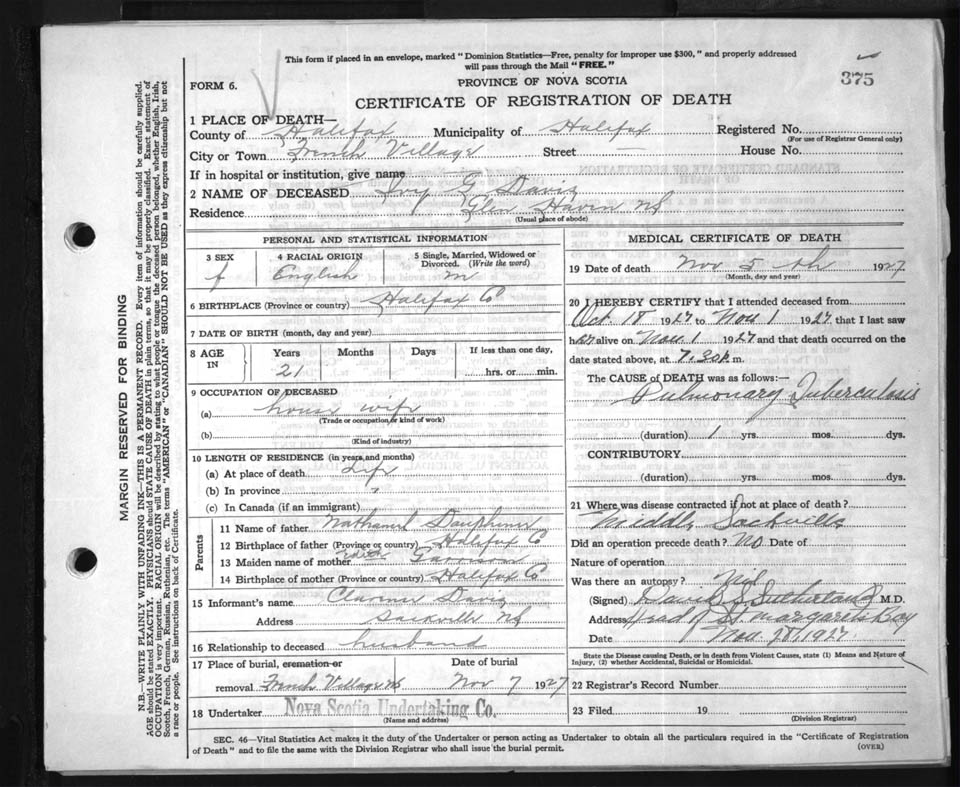 This form if placed in an envelope, marked "Dominion Statistics—Free, penalty for improper use $300," and properly addressed
will pass through the Mail "FREE."
375
FORM 6.
PROVINCE OF NOVA SCOTIA
CERTIFICATE OF REGISTRATION OF DEATH
1 PLACE OF DEATH—
County of Halifax Municipality of Halifax Registered No.
(For use of Registrar General only)
City or Town French Village Street — House No.
If in hospital or institution, give name
2 NAME OF DECEASED Ivy G Davis
Residence Glen Haven NS
(Usual place of abode)
PERSONAL AND STATISTICAL INFORMATION
3 SEX 4 RACIAL ORIGIN 5 Single, Married, Widowed or Divorced. (Write the word)
f English m
6 BIRTHPLACE (Province or country) Halifax Co
7 DATE OF BIRTH (month, day and year)
8 AGE IN Years Months Days If less than one day,
21 hrs. or min.
9 OCCUPATION OF DECEASED
(a) house wife
(Trade or occupation or kind of work)
(b)
(Kind of industry)
10 LENGTH OF RESIDENCE (in years and months)
(a) At place of death Life
(b) In province "
(c) In Canada (if an immigrant)
Parents
11 Name of father Nathaniel Dauphinee
12 Birthplace of father (Province or country) Halifax Co
13 Maiden name of mother Edith Garrison
14 Birthplace of mother (Province or country) Halifax Co
15 Informant's name Clarence Davis
Address Sackville NS
16 Relationship to deceased husband
17 Place of burial, cremation or Date of burial
removal French Village NS Nov 7 1927
18 Undertaker Nova Scotia Undertaking Co.
(Name and address)
MEDICAL CERTIFICATE OF DEATH
19 Date of death Nov 5th 1927
(Month, day and year)
20 I HEREBY CERTIFY that I attended deceased from
Oct. 18 1927 to Nov 1 1927 that I last saw
her alive on Nov 1 1927 and that death occurred on the
date stated above, at 7.30 P m.
The CAUSE OF DEATH was as follows:—
Pulmonary Tuberculosis
(duration) 1 yrs. mos. dys.
CONTRIBUTORY
(duration) yrs. mos. dys.
21 Where was disease contracted if not at place of death?
Middle Sackville
Did an operation precede death? No Date of
Nature of operation
Was there an autopsy? Nil
(Signed) David S Sutherland M.D.
Address Head of St. Margarets Bay
Date Nov. 28, 1927
State the Disease causing Death, or in death from Violent Causes, state (1) Means and Nature of
Injury, (2) whether Accidental, Suicidal or Homicidal.
22 Registrar's Record Number
23 Filed 19
(Division Registrar)
SEC. 46—Vital Statistics Act makes it the duty of the Undertaker or person acting as Undertaker to obtain all the particulars required in the "Certificate of Registration
of Death" and to file the same with the Division Registrar who shall issue the burial permit.
(OVER)
MARGIN RESERVED FOR BINDING
N.B.—WRITE PLAINLY WITH UNFADING INK—THIS IS A PERMANENT RECORD. Every item of information should be carefully supplied.
AGE should be stated EXACTLY. PHYSICIANS should STATE CAUSE OF DEATH in plain terms, so that it may be properly classified. Exact statement of
OCCUPATION is very important. RACIAL ORIGIN will be described by stating to what people or tongue the deceased person belonged, whether English, Irish,
Scotch, French, German, Russian, Ruthenian, etc. The terms "AMERICAN" or "CANADIAN" SHOULD NOT BE USED as they express citizenship but not
a race or people. See instructions on back of Certificate.